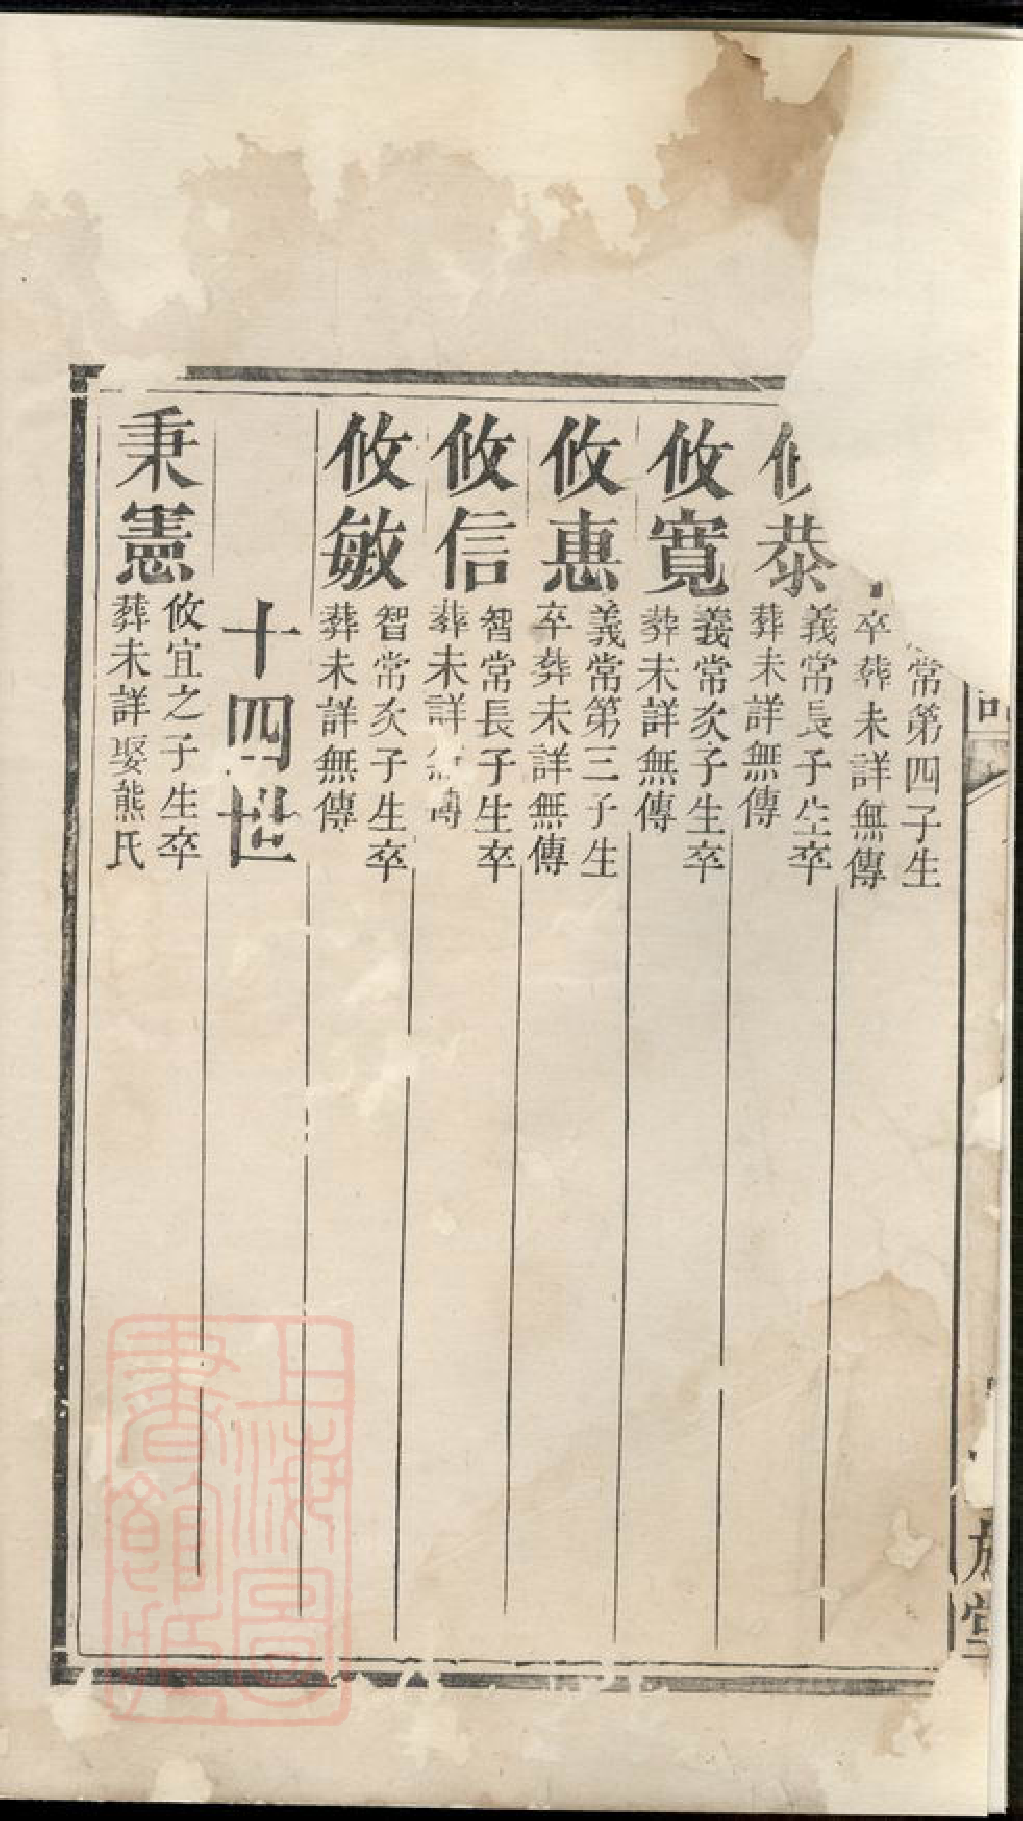 常第四子生
卒葬未詳無傳
恭
義常長子生卒
葬未詳無傳
攸寛
義常次子生卒
葬未詳無傳
攸惠
義常第三子生
卒葬未詳無傳
攸信
智常長子生卒
葬未詳無傳
攸敏
智常次子生卒
葬未詳無傳
十四世
秉憲
攸宜之子生卒
葬未詳娶熊氏
堂
上海圖
書館藏